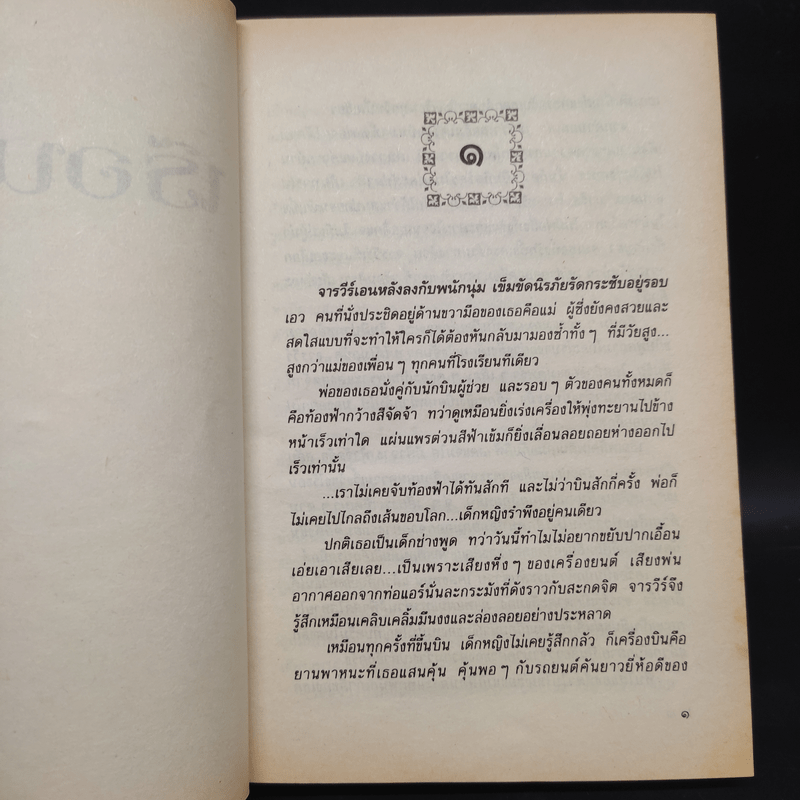 เรือน
๑
จารวีร์เอนหลังลงกับพนักนุ่ม เข็มขัดนิรภัยรัดกระชับอยู่รอบ
เอว คนที่นั่งประชิดอยู่ด้านขวามือของเธอคือแม่ ผู้ซึ่งยังคงสวยและ
สดใสแบบที่จะทำให้ใครก็ได้ต้องหันกลับมามองซ้ำทั้งๆ ที่มีวัยสูง...
สูงกว่าแม่ของเพื่อนๆ ทุกคนที่โรงเรียนทีเดียว
พ่อของเธอนั่งคู่กับนักบินผู้ช่วย และรอบๆ ตัวของคนทั้งหมดก็
คือท้องฟ้ากว้างสีจัดจ้า ทว่าดูเหมือนยิ่งเร่งเครื่องให้พุ่งทะยานไปข้าง
หน้าเร็วเท่าใด แผ่นแพรต่วนสีฟ้าเข้มก็ยิ่งเลื่อนลอยถอยห่างออกไป
เร็วเท่านั้น
...เราไม่เคยจับท้องฟ้าได้ทันสักที และไม่ว่าบินสักกี่ครั้ง พ่อก็
ไม่เคยไปไกลถึงเส้นขอบโลก...เด็กหญิงรำพึงอยู่คนเดียว
ปกติเธอเป็นเด็กช่างพูด ทว่าวันนี้ทำไมไม่อยากขยับปากเอื้อน
เอ่ยเอาเสียเลย...เป็นเพราะเสียงหึ่งๆ ของเครื่องยนต์ เสียงพ่น
อากาศออกจากท่อแอร์นั่นละกระมังที่ดังราวกับสะกดจิต จารวีร์จึง
รู้สึกเหมือนเคลิบเคลิ้มมึนงงและล่องลอยอย่างประหลาด
เหมือนทุกครั้งที่ขึ้นบิน เด็กหญิงไม่เคยรู้สึกกลัว ก็เครื่องบินคือ
ยานพาหนะที่เธอแสนคุ้น คุ้นพอๆ กับรถยนต์คันยาวยี่ห้อดีของ
๑